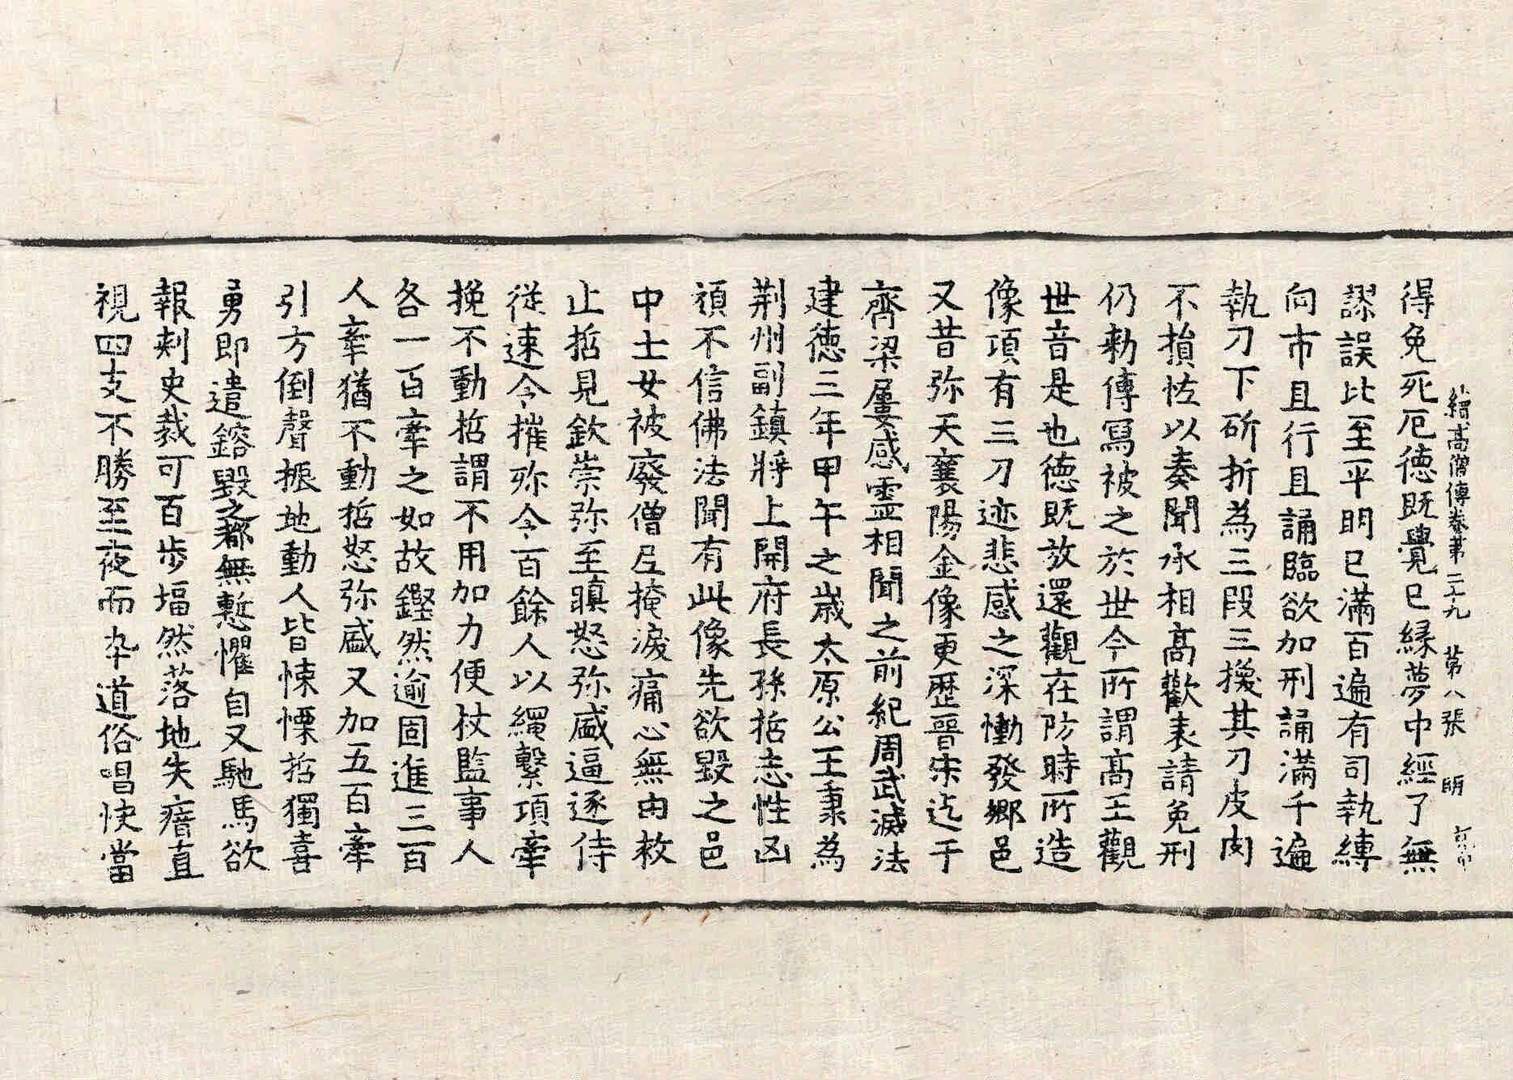 續高僧傳卷第二十九　第八張　明
得免死厄德既覺已緣夢中經了無
謬誤比至平明已滿百遍有司執縛
向市且行且誦臨欲加刑誦滿千遍
執刀下斫折為三段三換其刀皮肉
不損恠以奏聞承相高歡表請免刑
仍勑傳寫被之於世今所謂高王觀
世音是也德既放還觀在防時所造
像項有三刀迹悲感之深慟發鄉邑
又昔弥天襄陽金像更歷晉宋迄于
齊梁屢感靈相聞之前紀周武滅法
建德三年甲午之歲太原公王秉為
荊州副鎮將上開府長孫哲志性凶
頑不信佛法聞有此像先欲毀之邑
中士女被廢僧尼掩淚痛心無由救
止哲見欽崇弥至瞋怒弥盛逼逐侍
從速令摧殄令百餘人以繩繫項牽
挽不動哲謂不用加力便杖監事人
各一百牽之如故鏗然逾固進三百
人牽猶不動哲怒弥盛又加五百牽
引方倒聲振地動人皆悚慄哲獨喜
勇即遣鎔毀之都無慙懼自又馳馬欲
報刾史裁可百步塸然落地失瘖直
視四支不勝至夜而卒道俗唱快當